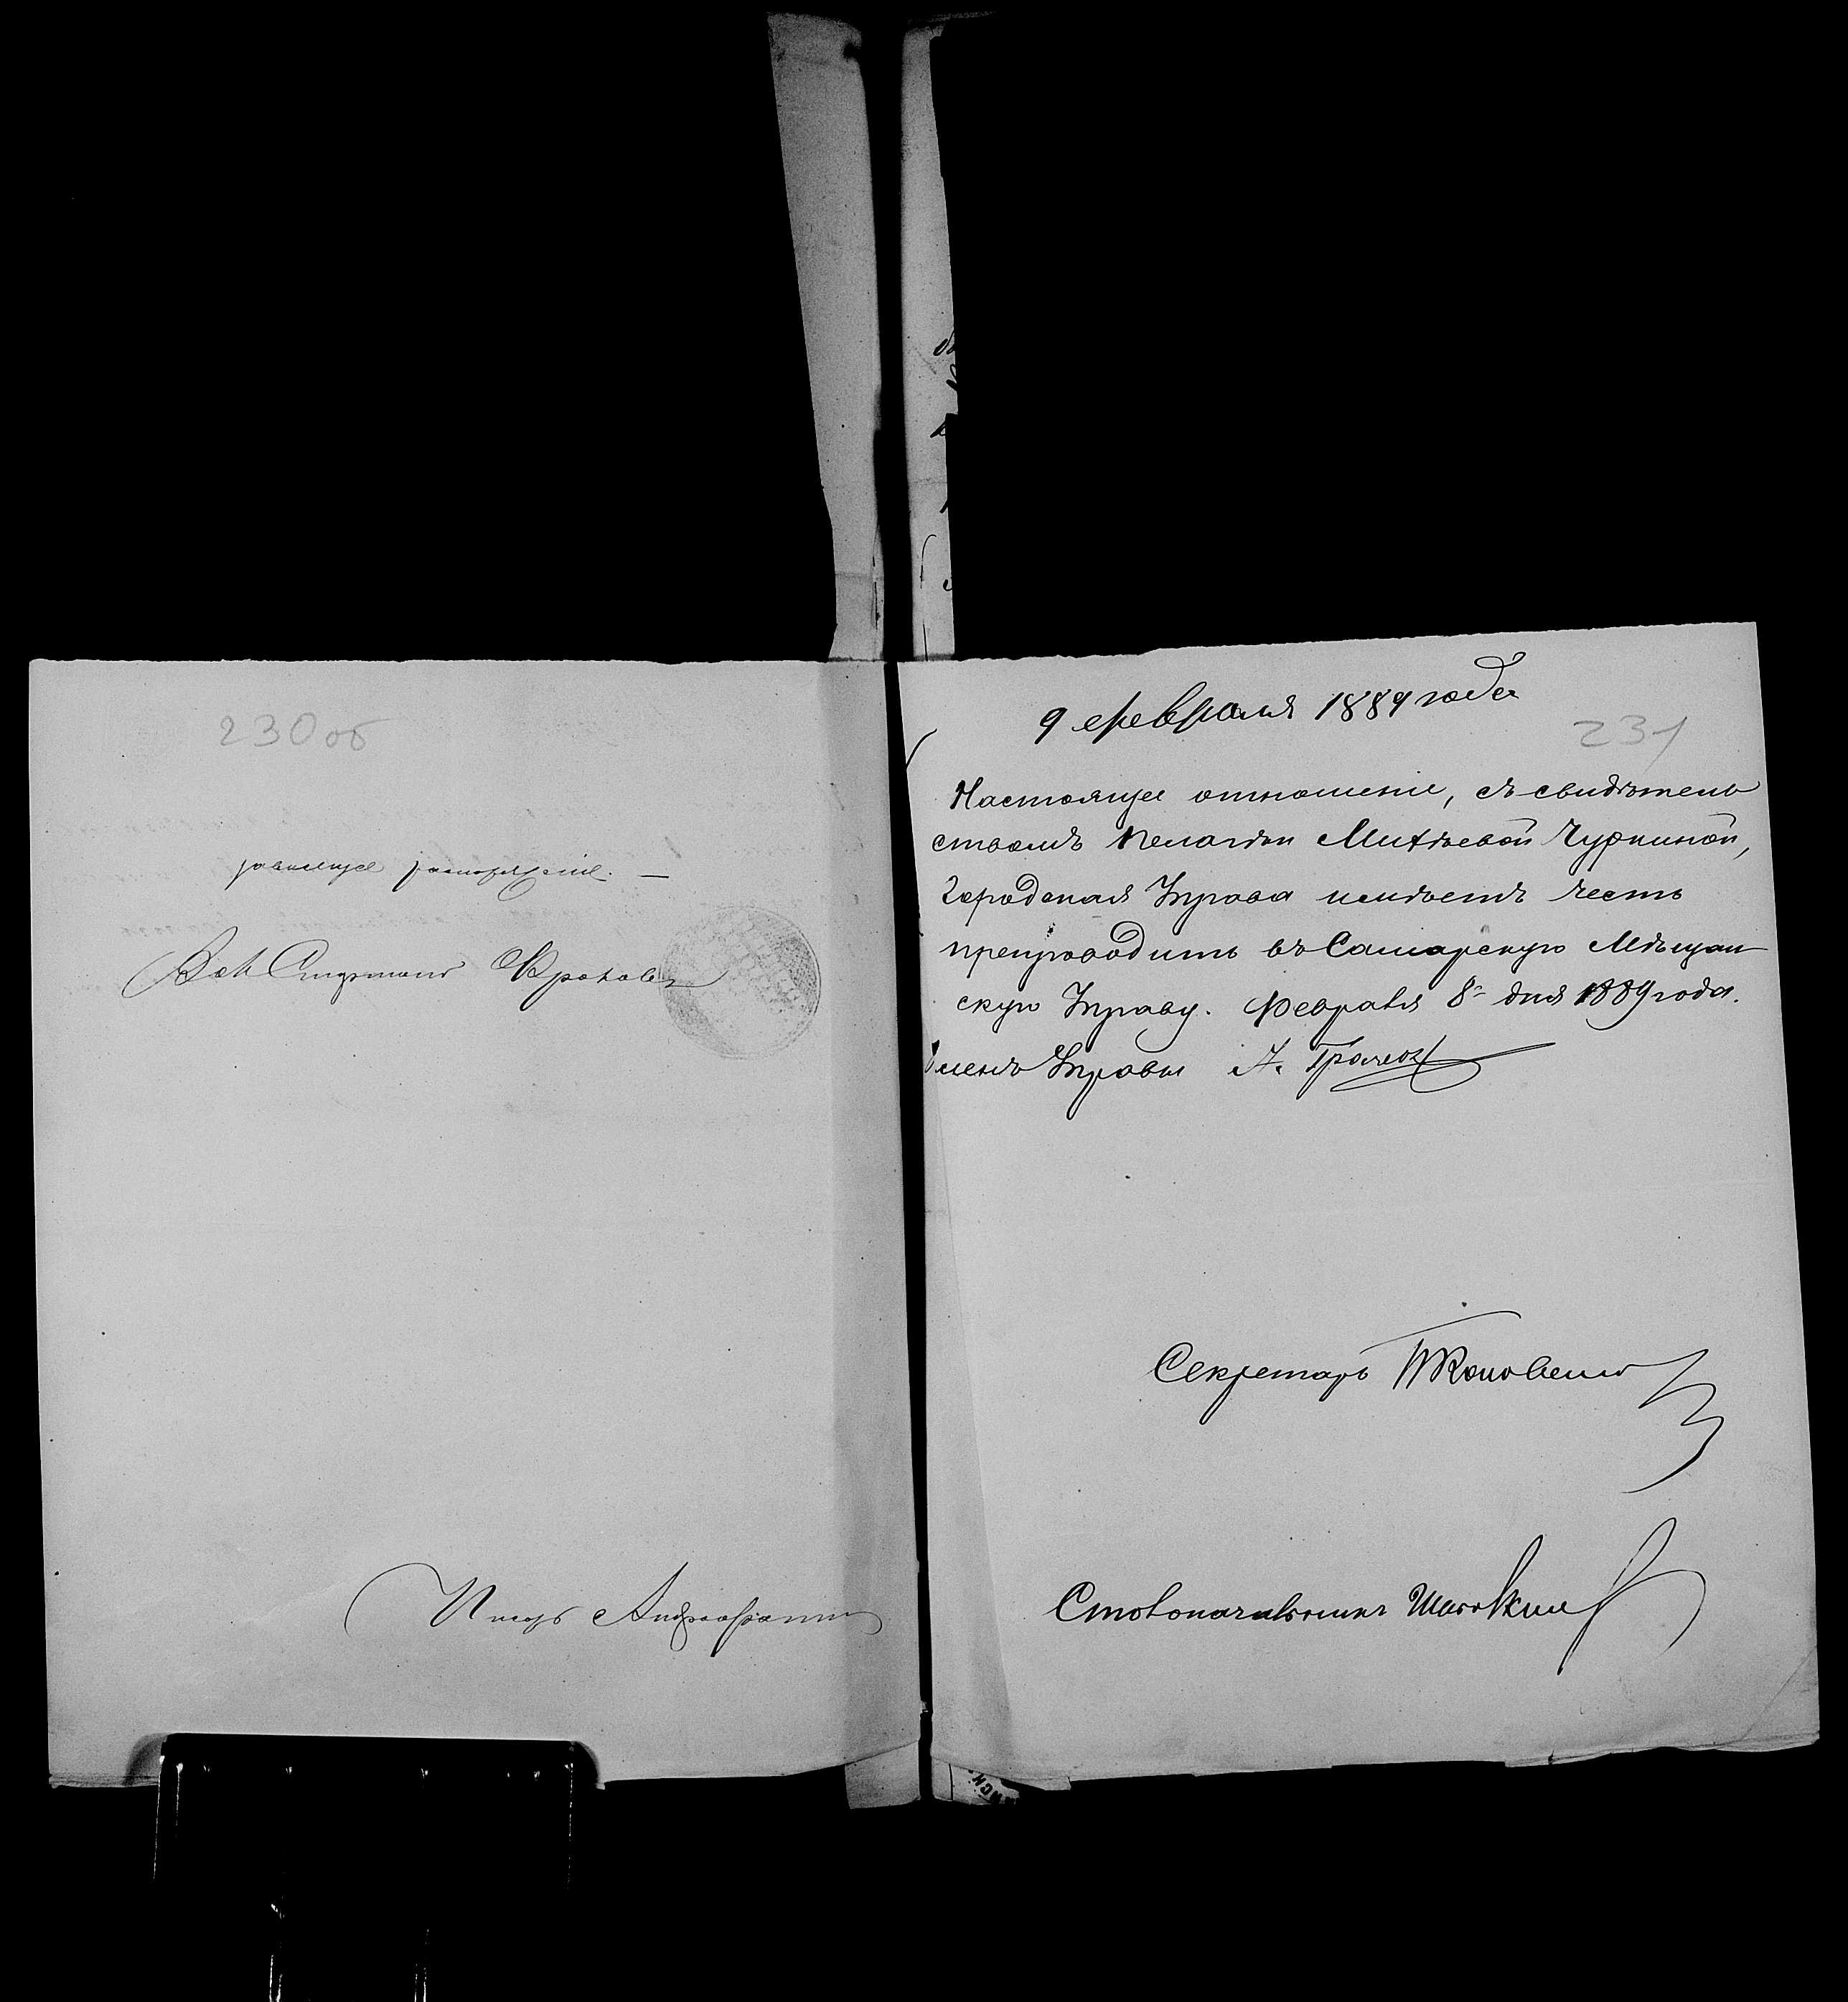 230 об
распоряженіе. —
Писарь
9 февраля 1889 года
231
Настоящее отношеніе, съ свидѣтель
ствомъ Пелагѣи Матвѣевой Чуркиной,
Городская Управа имѣетъ честь
препроводить въ Самарскую Мѣщан
скую Управу. Февраля 8 дня 1889 года.
Членъ Управы А. Грачев
Секретарь
Столоначальникъ